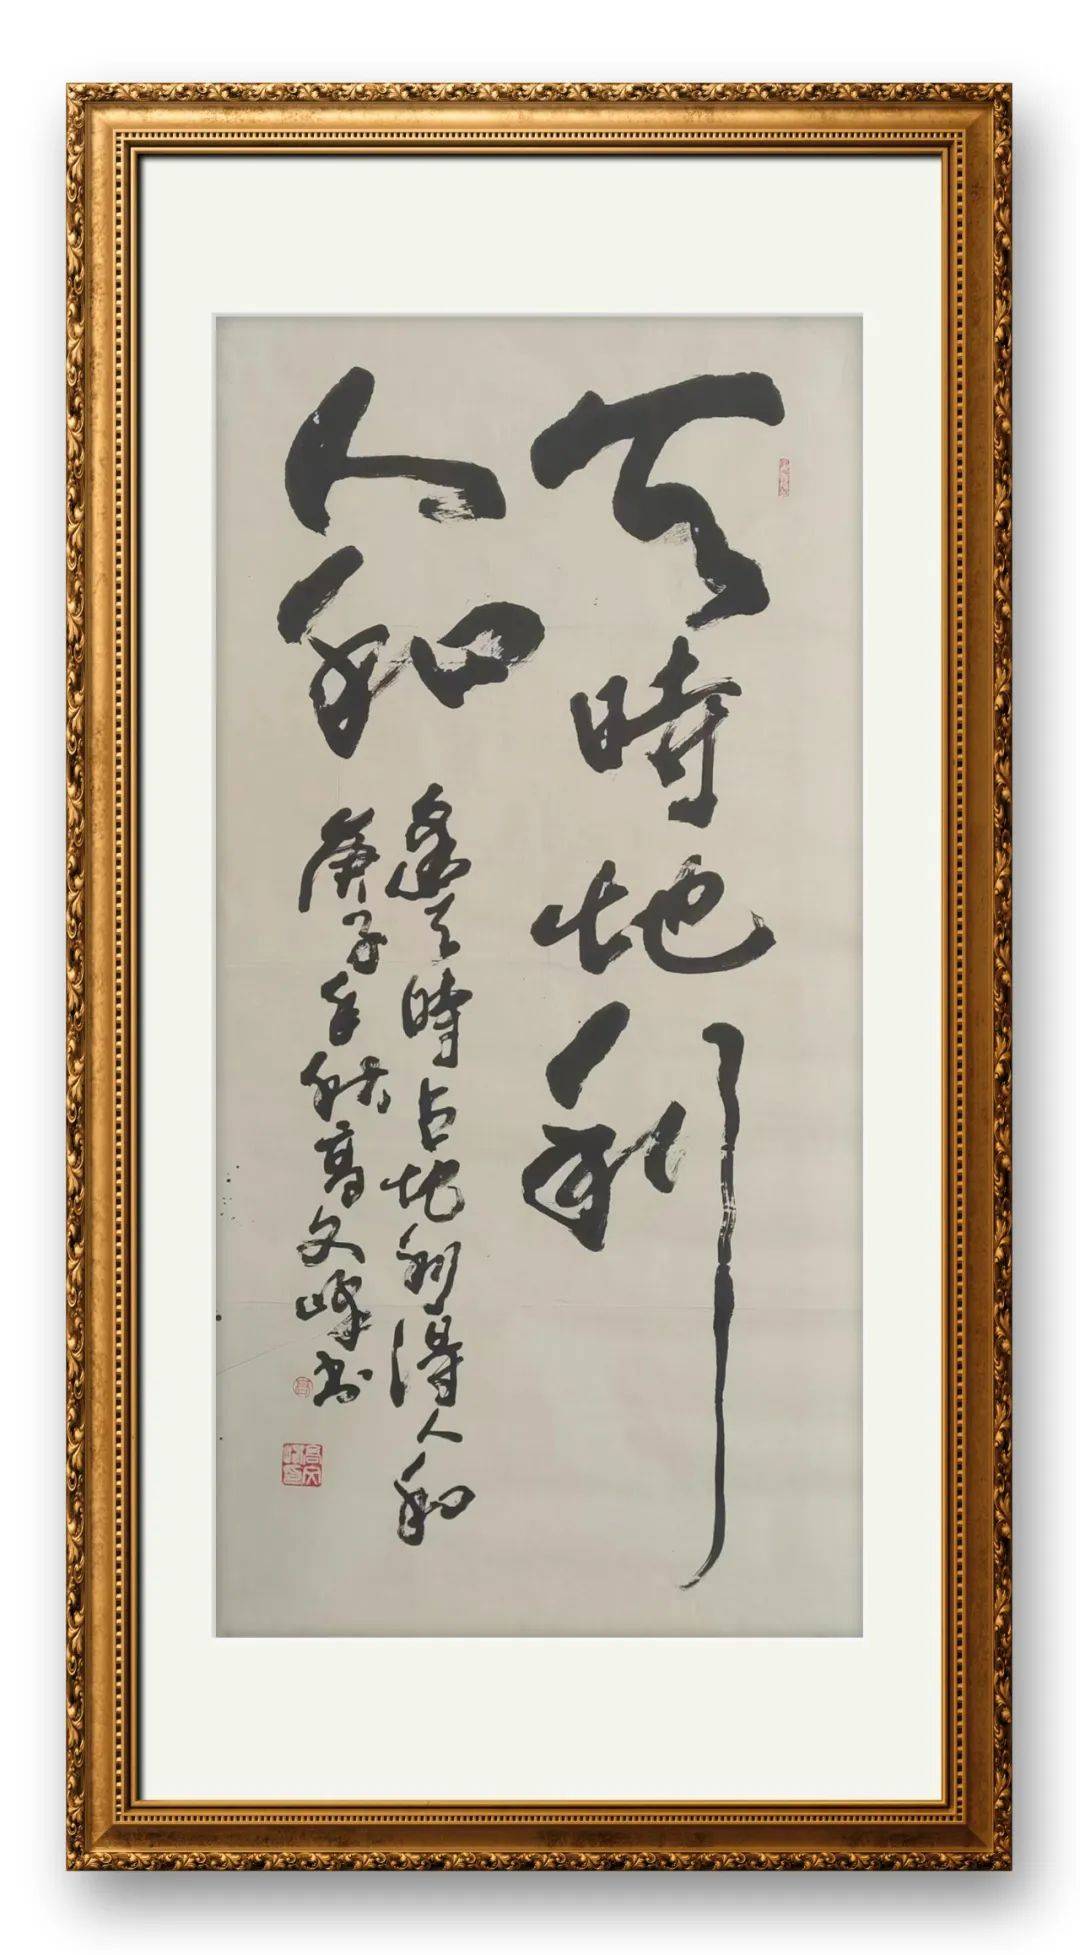 天時地利
人和
逢天時占地利得人和
庚子年秋高文峰书